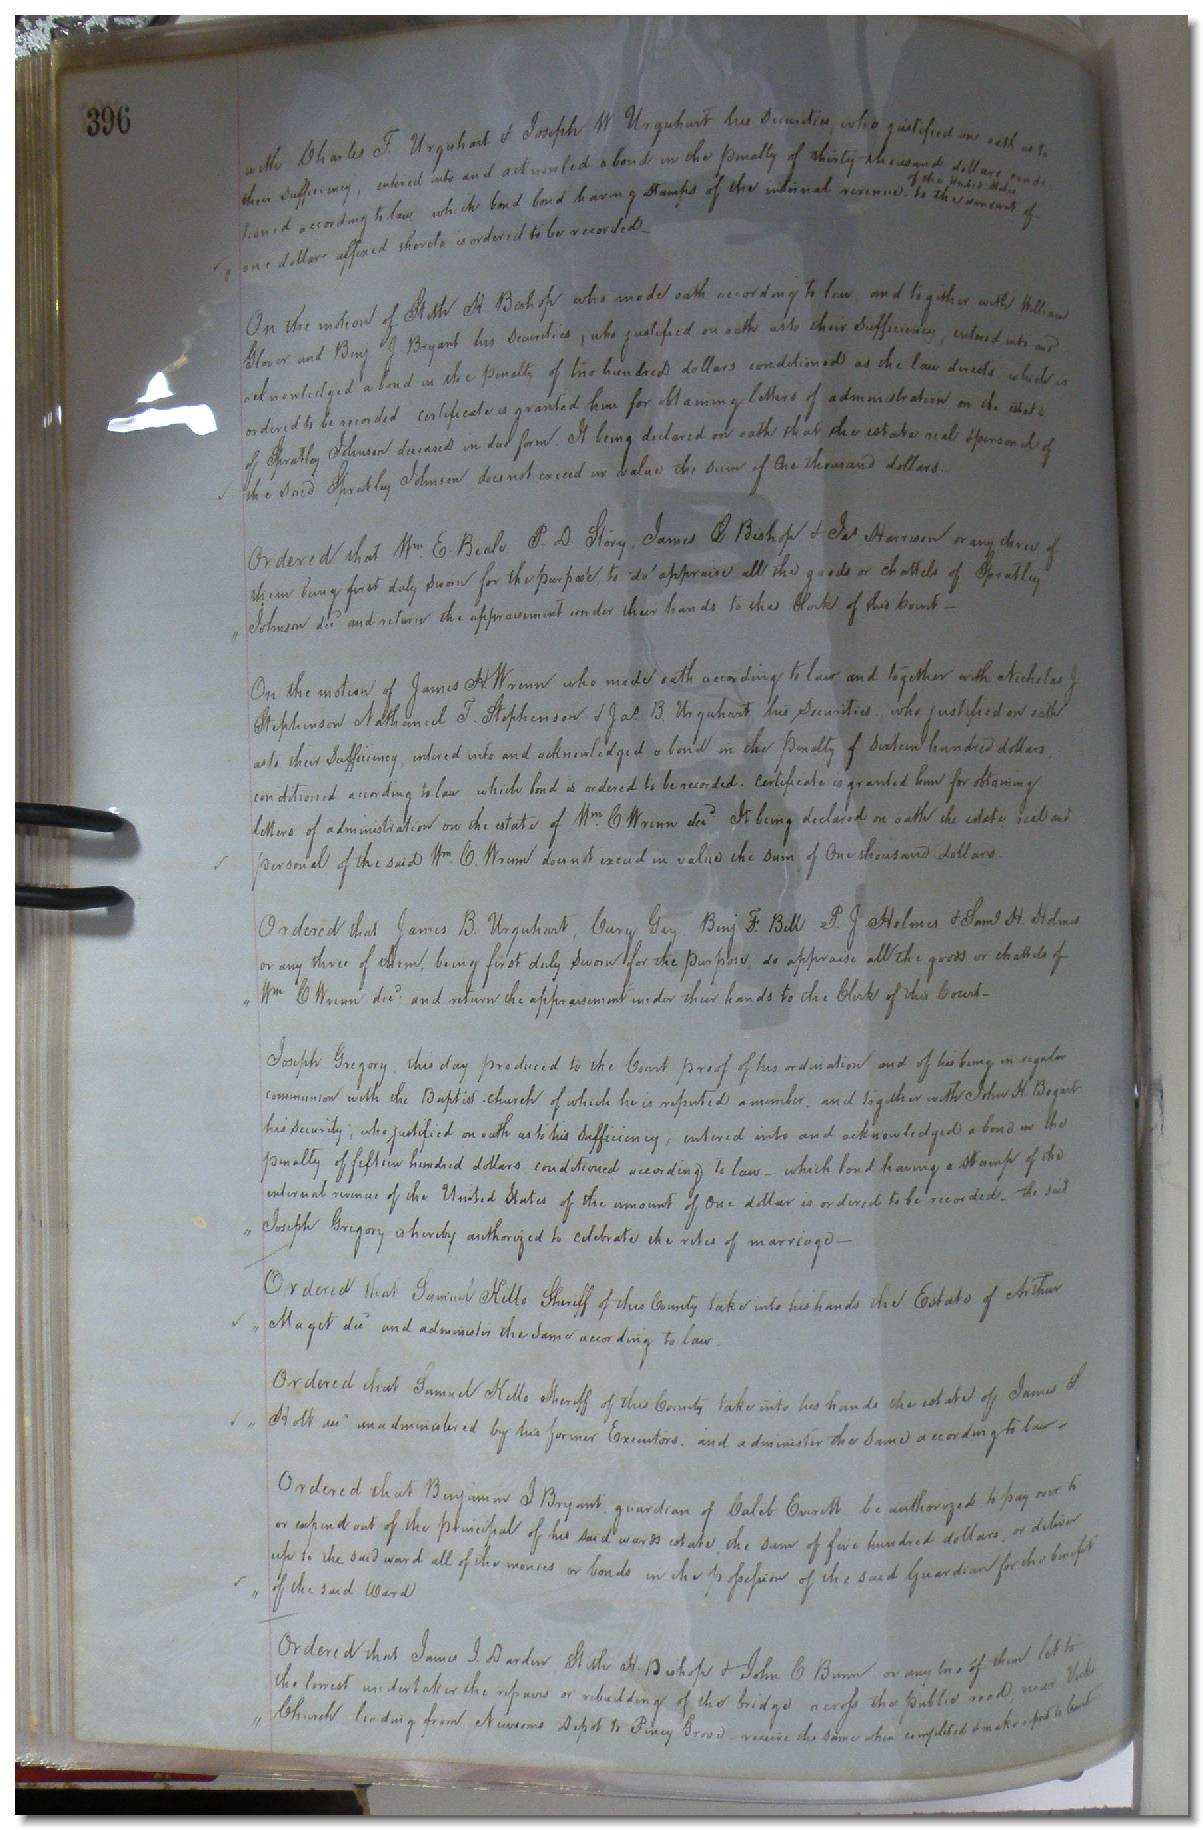 396
with Charles F. Urquhart & Joseph W Urquhart his Securities, who justified on oath as to
their sufficiency, entered into and acknowled a bond in the penalty of thirty thousand dollars condi
of the United States
tioned according to law which bond bond having stamps of the internal revenue to the amount of
one dollar affixed thereto is ordered to be recorded—
On the motion of Stith H. Bishop who made oath according to law, and together with William
Glover and Benj J Bryant his Securities, who justified on oath as to their sufficiency, entered into and
acknowledged a bond in the penalty of two hundred dollars conditioned as the law directs which is
ordered to be recorded certificate is granted him for obtaining letters of administration on the estate
of Spratley Johnson deceased in due form. It being declared on oath that the estate real & personal of
the said Spratley Johnson does not exceed in value the sum of One thousand dollars.
Ordered that Wm E. Beale P. D. Story, James E Bishop & Jas Harrison or any three of
them being first duly sworn for the purpose, to do appraise all the goods or chattels of Spratley
Johnson decd and return the appraisement under their hands to the Clerk of this Court—
On the motion of James H Wrenn who made oath according to law and together with Nicholas J
Stephenson Nathaniel T. Stephenson & Jas. B. Urquhart his Securities, who justified on oath
as to their Sufficiency, entered into and acknowledged a bond in the penalty of Sixteen hundred dollars
conditioned according to law which bond is ordered to be recorded. Certificate is granted him for obtaining
letters of administration on the estate of Wm. C Wrenn decd It being declared on oath the estate real and
personal of the said Wm C. Wrenn does not exceed in value the sum of One thousand dollars.
Ordered that James B. Urquhart, Cury Gay, Benj F. Bell P. J Holmes & Saml H. Holmes
or any three of them, being first duly sworn for the purpose, do appraise all the goods or chattels of
Wm C Wrenn decd and return the appraisement under their hands to the Clerk of this Court—
Joseph Gregory, this day produced to the Court proof of his ordination and of his being in regular
communion with the Baptist church of which he is reputed a member, and together with John H. Bogart
his security, who justified on oath as to his sufficiency, entered into and acknowledged a bond in the
penalty of fifteen hundred dollars conditioned according to law— which bond having a stamp of the
internal revenue of the United States of the amount of One dollar is ordered to be recorded— the said
Joseph Gregory is hereby authorized to celebrate the rites of marriage—
Ordered that Samuel Kello Sheriff of this County take into his hands the Estate of Arthur
Maget decd and administer the same according to law.
Ordered that Samuel Kello Sheriff of this County take into his hands the estate of James S
Holt decd unadministered by his former Executors. and administer the same according to law—
Ordered that Benjamin J Bryant guardian of Caleb Everett be authorized to pay over to
or expend out of the principal of his said wards estate, the sum of five hundred dollars, or deliver
up to the said ward all of the monies or bonds in the possession of the said Guardian for the benefit
of the said Ward
Ordered that James J. Darden Stith H. Bishop & John C Bunn or any two of them let to
the lowest undertaker the repairs or rebuilding of the bridge across the public road, near Vicks
Church leading from Newsoms Depot to Piney Grove— receive the same when completed & make report to Court